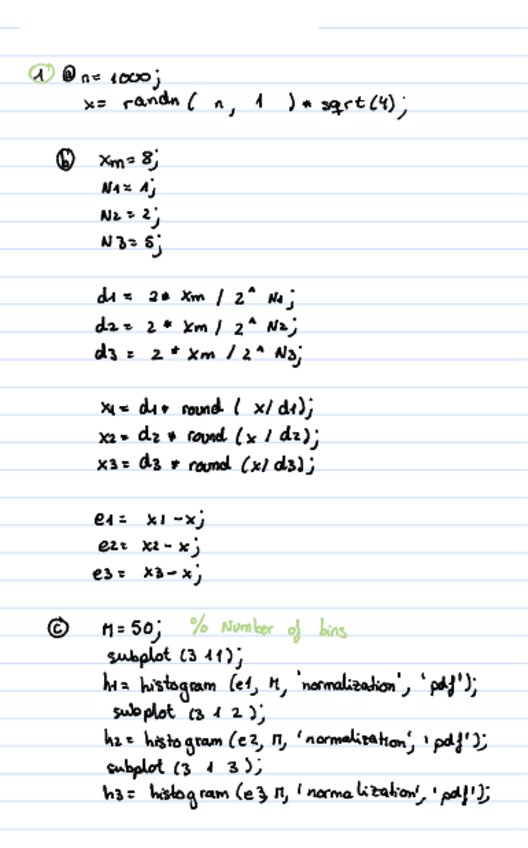 1 a n= 1000;
x= randn( n, 1 )* sqrt(4);
b xm= 8;
N1= 1;
N2= 2;
N3= 5;
d1= 2* xm / 2^ N1;
d2= 2 * xm / 2^ N2;
d3= 2 * xm / 2^ N3;
x1= d1* round ( x/ d1);
x2= d2 * round (x / d2);
x3= d3 * round (x/ d3);
e1= x1-x;
e2= x2- x;
e3= x3-x;
c M= 50; % Number of bins
subplot (3 1 1);
h1= histogram (e1, M, 'normalization', 'pdf');
subplot (3 1 2);
h2= histogram (e2, M, 'normalization', 'pdf');
subplot (3 1 3);
h3= histogram (e3, M, 'normalization', 'pdf');